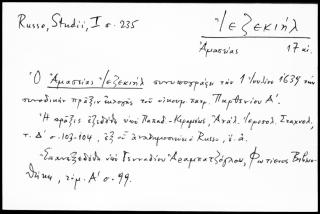 Russo, Studii, I σ. 235
Ἰεζεκιήλ
Ἀμασείας 17 αἰ.
Ὁ Ἀμασείας Ἰεζεκιὴλ συνυπογράφει τὴν 1 Ἰουλίου 1639 τὴν
συνοδικὴν πρᾶξιν ἐκλογῆς τοῦ οἰκουμ. πατρ. Παρθενίου Α΄.
Ἡ πρᾶξις ἐξεδόθη ὑπὸ Παπαδ.-Κεραμέως, Ἀνάλ. Ἱεροσολ. Σταχυολ.,
τ. Δ΄ σ. 103-104, ἐξ οὗ ἀναδημοσιεύει Russo, ἔ.ἀ.
Ἐπανεξεδόθη ὑπὸ Γενναδίου Ἀραμπατζόγλου, Φωτίειος Βιβλιο-
θήκη, τόμ. Α΄ σ. 99.